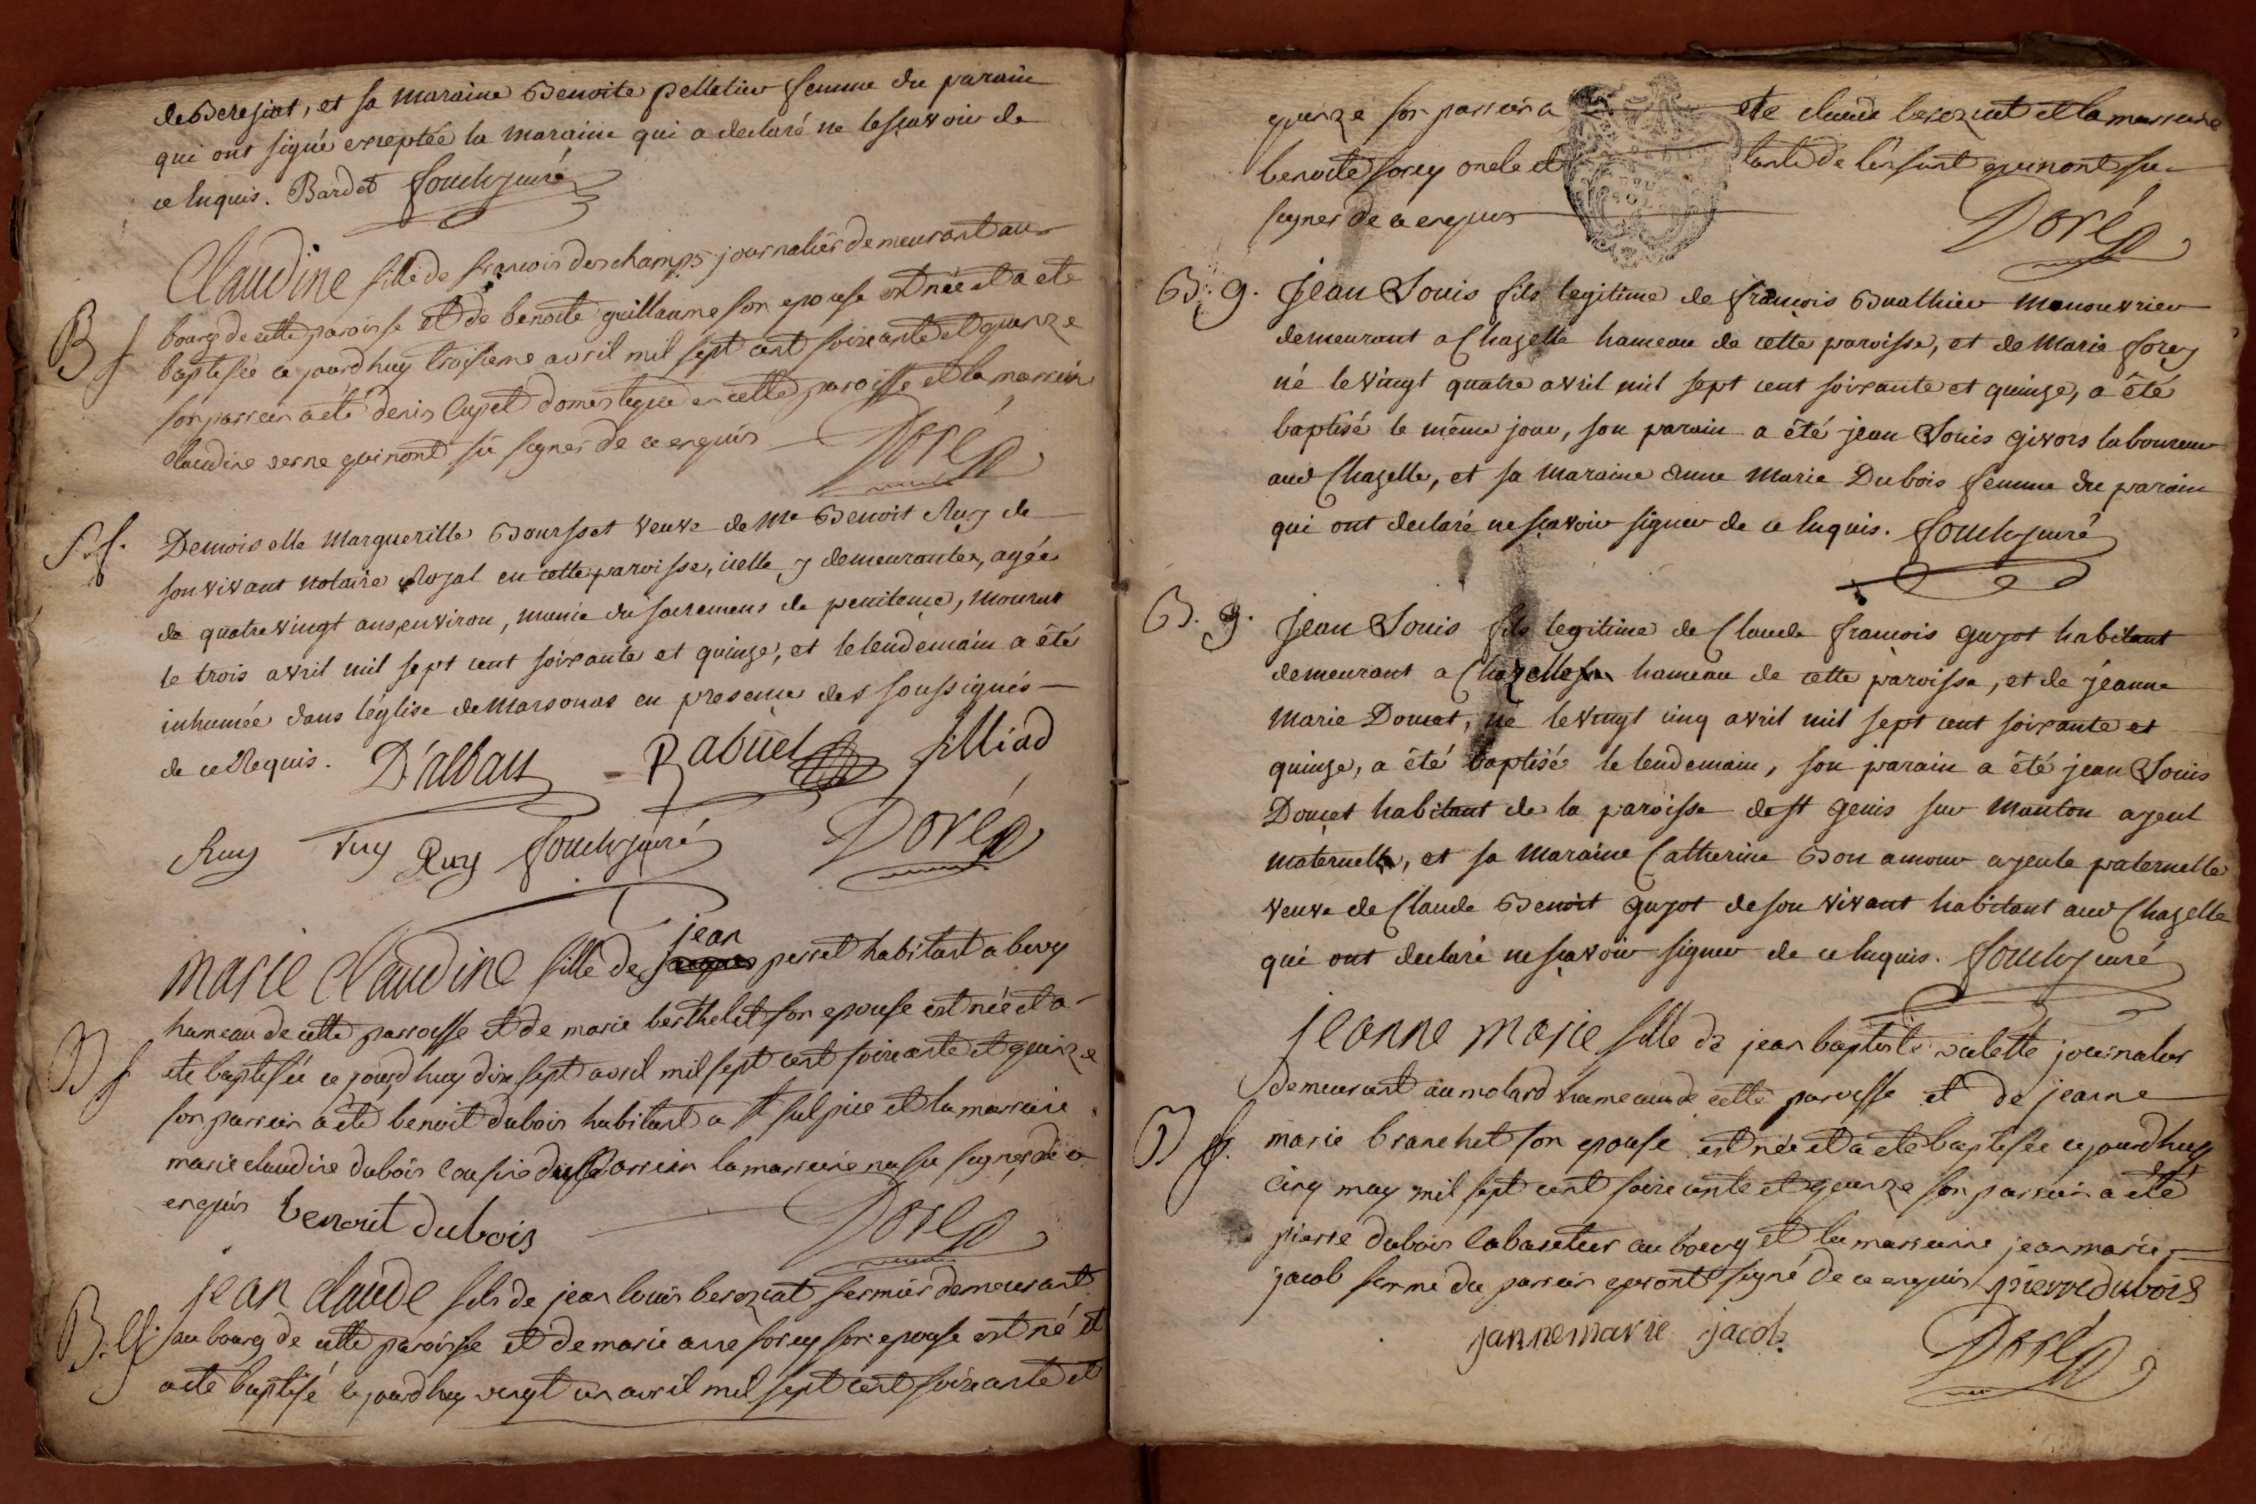 de Beresiat, et sa maraine Benoite pelletier femme du parain
qui ont signé exceptée la maraine qui a declaré ne le sçavoir de
ce Enquis. Bardet fouch curé
Claudine fille de francois deschamps journalier demeurant au
B f bourg de cette paroisse et de benoite guillaume son epouse est née et a ete
baptisée ce jourd'huy troisieme avril mil sept cent soixante et quinze
son parrein a été denis Cupet domestique en cette paroisse et la marreine
claudine verne qui n'ont sü signer de ce enquis Doré
S.f. Demoiselle Marguerille Boursset veuve de Me Benoit Ruy de
son vivant notaire Royal en cette paroisse, icelle y demeurante, agée
de quatrevingt ans environ, munie du sacremens de penitence, mourut
le trois avril mil sept cent soixante et quinze, et le lendemain a été
inhumée dans l'église de Marsonas en presence des soussignés
de ce Requis. D'alban Rabuel filliod
Ruy Ruy Ruy fouch curé Doré
jean
marie Claudine fille de jacques perret habitant a bevy
hameau de cette parroisse et de marie berthelet son epouse est née et a
B f ete baptisée ce jourd'huy dix sept avril mil sept cent soixante et quinze
son parrein a été benoit dubois habitant a st sulpice et la marreine
marie claudine dubois cousine du parrein la marreine n'a su signer de ce
enquis benoit dubois Doré
jean claude fils de jean louis bereziat fermier demeurant
B. g. au bourg de cette paroisse et de marie anne forey son epouse est né et
a ete baptisé ce jourd'huy vingt un avril mil sept cent soixante et
quinze son parrein a ete claude bereziat et la marreine
benoite forey oncle et tante de l'enfant qui n'ont su
signer de ce enquis Doré
B. g. Jean Louis fils legitime de françois Buathier manouvrier
demeurant a Chazelle hameau de cette paroisse, et de Marie forey
né le vingt quatre avril mil sept cent soixante et quinze, a été
baptisé le même jour, son parain a été jean Louis givors laboureur
aud Chazelle, et sa maraine anne Marie Dubois femme du parain
qui ont declaré ne sçavoir signer de ce Enquis. fouch curé
B. g. Jean Louis fils legitime de Claude françois guyot habitant
demeurant a Chazelle hameau de cette paroisse, et de jéanne
Marie Doucet, né le vingt cinq avril mil sept cent soixante et
quinze, a été baptisé le lendemain, son parain a été jean Louis
Douçet habitant de la paroisse de st genis sur Manton ayeul
maternelle, et sa Maraine Catherine Bon amour ayeule paternelle
veuve de Claude Benoit guyot de son vivant habitant aud Chazelle
qui ont declaré ne sçavoir signer de ce Enquis. fouch curé
Jeanne Marie fille de jean baptiste valette journalier
demeurant au molard hameau de cette paroisse et de jeanne
B f. marie branchet son epouse est née et a ete baptisée ce jourd'huy
cinq may mil sept cent soixante et quinze son parrein a été
pierre dubois laboureur au bourg et la marreine jeanmarie
jacob femme du parrein qui ont signé de ce enquis pierre dubois
jannemarie jacob Doré